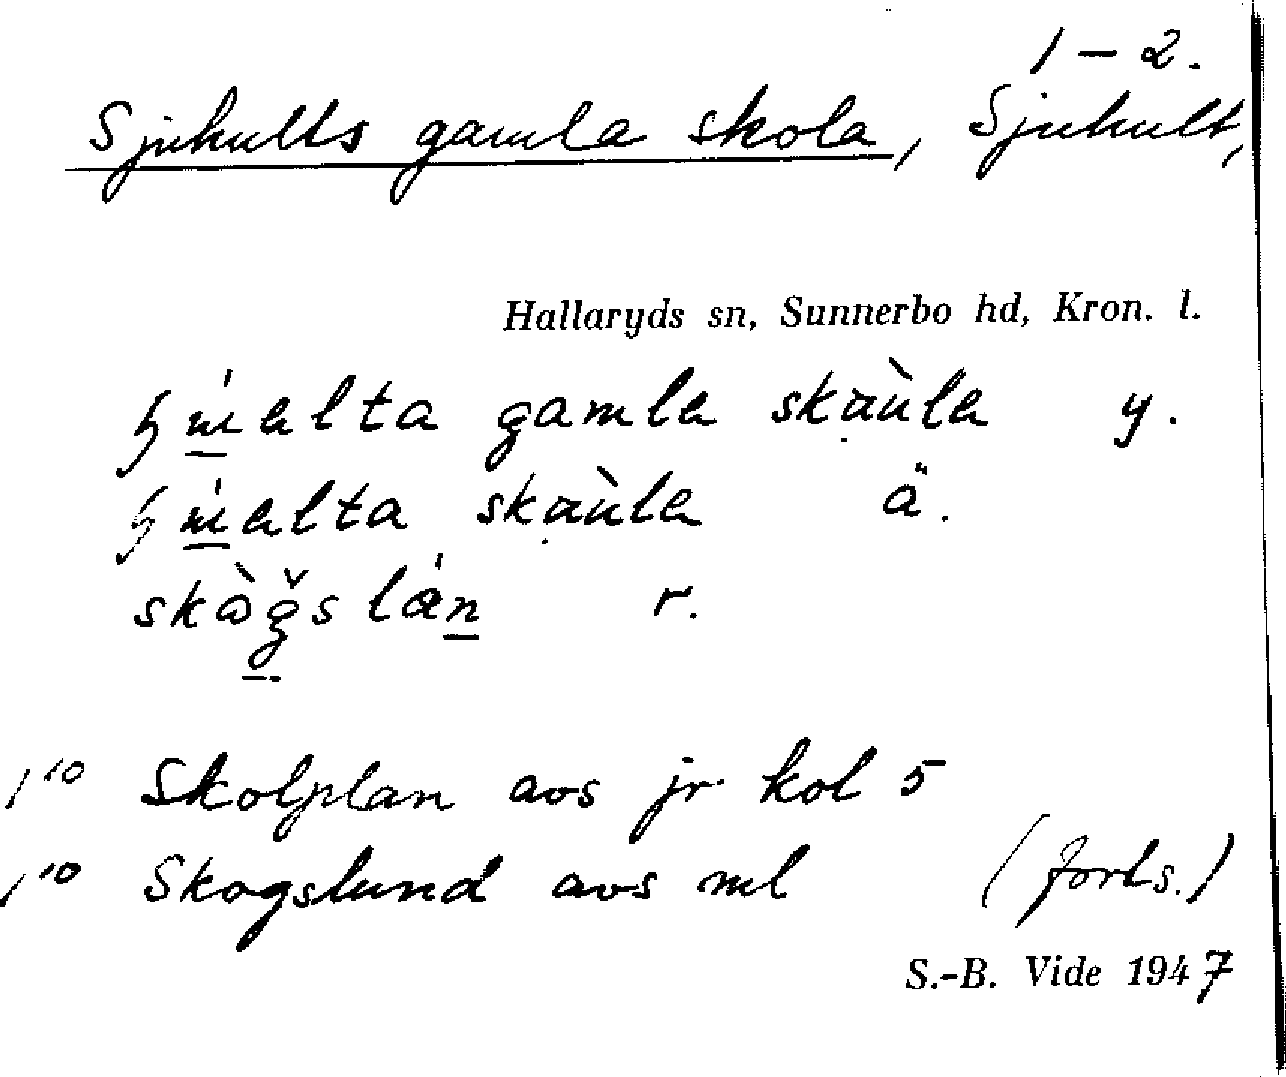 1-2.
Sjuhults gamla skola, Sjuhult,
Hallaryds sn, Sunnerbo hd, Kron. l.
gamla skau̇̀la y.
skau̇̀la ä.
r.
1¹⁰ Skolplan avs jr kol 5
1¹⁰ Skogslund avs ml (forts.)
S.-B. Vide 1947